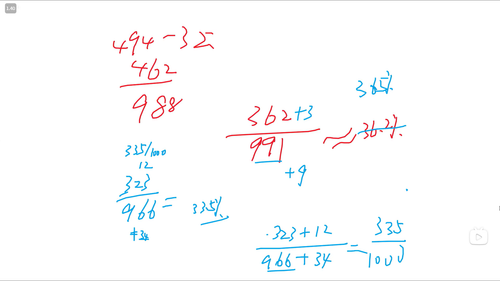 494-32
462
988
362+3
991
+9
≈
36.2%
36.5%
335/1000
12
323
966
+34
=
33.5%
323+12
966+34
=
335
1000